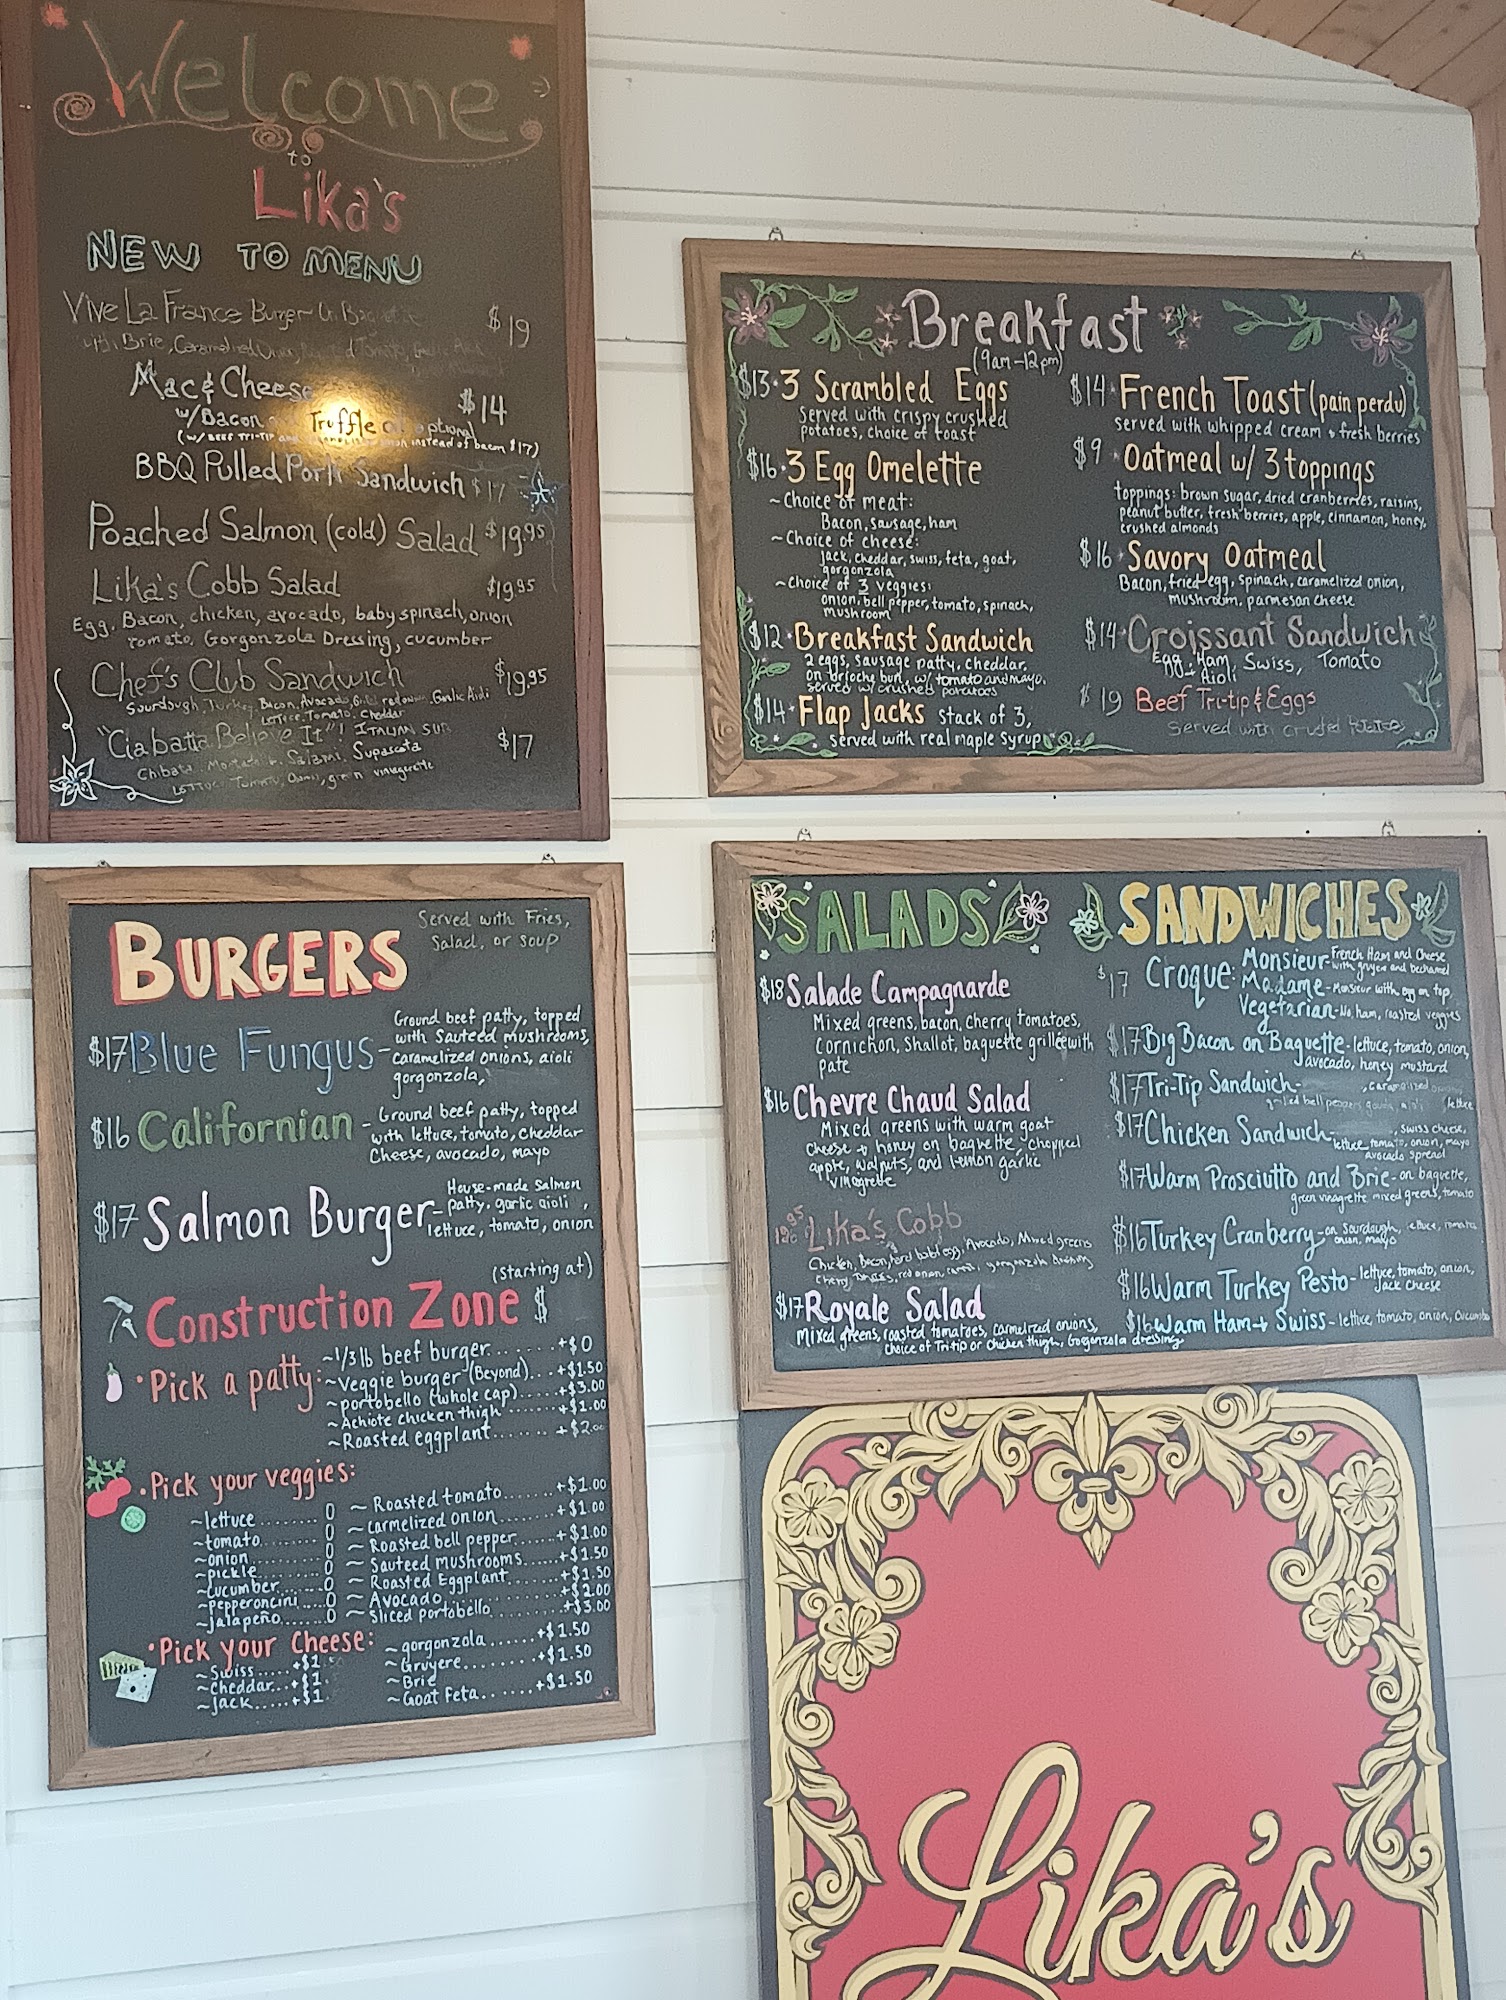 Welcome
to
Lika's
NEW TO MENU
Vive La France Burger $19
Brie,
Mac & Cheese $14
w/Bacon Truffle optional
(w/ BEEF TRI-TIP instead of bacon $17)
BBQ Pulled Pork Sandwich $17
Poached Salmon (cold) Salad $19.95
Lika's Cobb Salad $19.95
Egg, Bacon, chicken, avocado, baby spinach, onion
tomato, Gorgonzola Dressing, cucumber
Chef's Club Sandwich $19.95
Sourdough, Turkey, Bacon, Avocado, red onion, Garlic Aioli
Lettuce, Tomato, Cheddar
"Ciabatta Believe It"! ITALIAN SUB $17
Salami, Supasota
Tomato, Onion, green vinagerette
Breakfast
(9am-12pm)
$13 • 3 Scrambled Eggs
served with crispy crushed
potatoes, choice of toast
$16 • 3 Egg Omelette
~Choice of meat:
Bacon, sausage, ham
~Choice of cheese:
jack, cheddar, swiss, feta, goat,
gorgonzola
~choice of 3 veggies:
onion, bell pepper, tomato, spinach,
mushroom
$12 • Breakfast Sandwich
2 eggs, sausage patty, cheddar,
on brioche bun, w/ tomato and mayo.
served w/ crushed potatoes
$14 • Flap Jacks stack of 3,
served with real maple syrup
$14 • French Toast (pain perdu)
served with whipped cream + fresh berries
$9 • Oatmeal w/ 3 toppings
toppings: brown sugar, dried cranberries, raisins,
peanut butter, fresh berries, apple, cinnamon, honey,
crushed almonds
$16 • Savory Oatmeal
Bacon, fried egg, spinach, caramelized onion,
mushroom, parmesan cheese
$14 • Croissant Sandwich
Egg, Ham, Swiss, Tomato
Aioli
$19 Beef Tri-tip & Eggs
Served with
BURGERS
Served with Fries,
Salad, or soup
$17 Blue Fungus - Ground beef patty, topped
with Sauteed mushrooms,
caramelized onions, aioli
gorgonzola,
$16 Californian - Ground beef patty, topped
with lettuce, tomato, cheddar
Cheese, avocado, mayo
$17 Salmon Burger - House-made salmon
patty, garlic aioli,
lettuce, tomato, onion
(starting at)
Construction Zone $
• Pick a patty: ~1/3 lb beef burger........+$0
~veggie burger (Beyond)...+$1.50
~portobello (whole cap).....+$3.00
~Achiote chicken thigh.......+$1.00
~Roasted eggplant..........+$2.00
• Pick your veggies:
~lettuce.........0
~tomato.........0
~onion..........0
~pickle..........0
~cucumber.......0
~pepperoncini....0
~jalapeño.......0
~Roasted tomato.......+$1.00
~carmelized onion.......+$1.00
~Roasted bell pepper.....+$1.00
~Sauteed mushrooms.....+$1.50
~Roasted Eggplant.......+$1.50
~Avocado.............+$2.00
~Sliced portobello.........+$3.00
• Pick your Cheese:
~Swiss.....+$1
~Cheddar...+$1
~Jack.....+$1
~gorgonzola......+$1.50
~Gruyere........+$1.50
~Brie
~Goat Feta.......+$1.50
SALADS
$18 Salade Campagnarde
Mixed greens, bacon, cherry tomatoes,
cornichon, shallot, baguette grillée with
pate
$16 Chevre Chaud Salad
Mixed greens with warm goat
cheese + honey on baguette, chopped
apple, walnuts, and lemon garlic
vinagrete
Lika's Cobb
Chicken, Bacon, hard boiled egg, Avocado, Mixed greens
Cherry red onion, gorgonzola dressing
$17 Royale Salad
Mixed greens, roasted tomatoes, carmelized onions,
choice of Tri-tip or chicken thigh, Gorgonzola dressing
SANDWICHES
$17 Croque: Monsieur - French Ham and Cheese
with gruyere and bechamel
Madame - Monsieur with egg on top
Vegetarian - No ham, roasted veggies
$17 Big Bacon on Baguette - lettuce, tomato, onion,
avocado, honey mustard
$17 Tri-Tip Sandwich - , caramelized
grilled bell peppers, gouda, aioli lettuce
$17 Chicken Sandwich - , swiss cheese,
lettuce, tomato, onion, mayo
avocado spread
$17 Warm Prosciutto and Brie - on baguette,
green vinagrette mixed greens, tomato
$16 Turkey Cranberry - on Sourdough, lettuce, tomato
onion, mayo
$16 Warm Turkey Pesto - lettuce, tomato, onion,
Jack cheese
$16 Warm Ham + Swiss - lettuce, tomato, onion,
Lika's